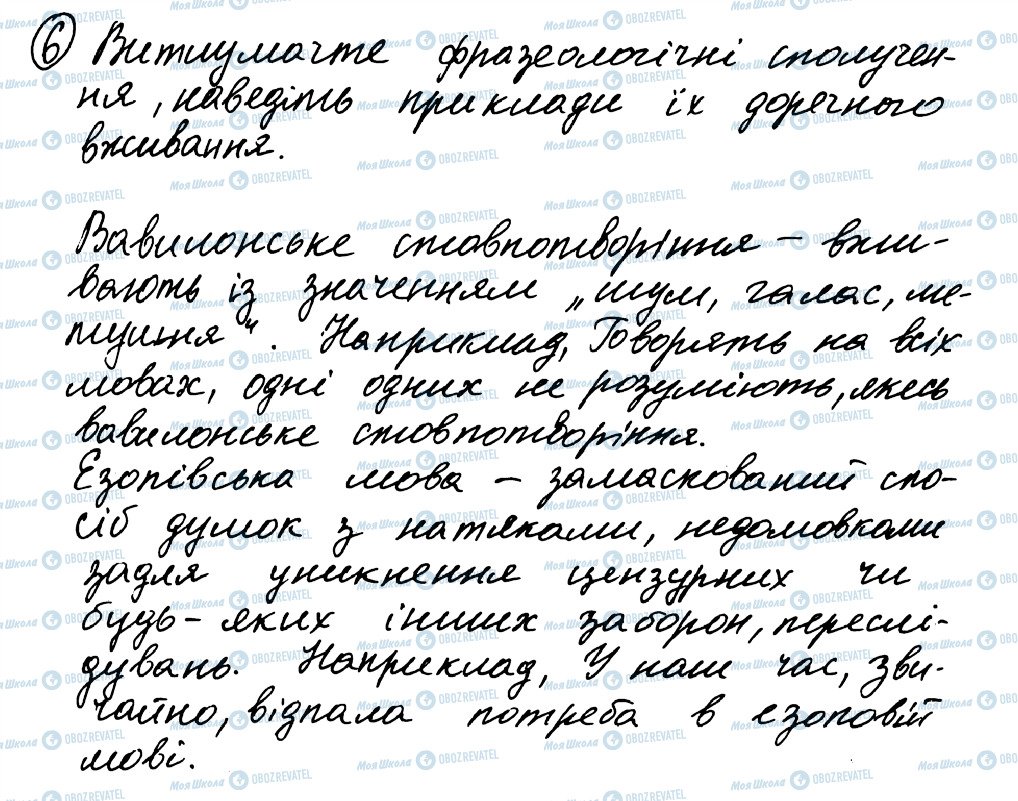 6 Витлумачте фразеологічні сполучен-
ня, наведіть приклади їх доречного
вживання.
Вавилонське стовпотворіння – вжи-
вають із значенням „шум, галас, ме-
тушня". Наприклад, Говорять на всіх
мовах, одні одних не розуміють, якесь
вавилонське стовпотворіння.
Езопівська мова – замаскований спо-
сіб думок з натяками, недомовками
задля уникнення цензурних чи
будь-яких інших заборон, переслі-
дувань. Наприклад, У наш час, зви-
чайно, відпала потреба в езоповій
мові.
МОЯ ШКОЛА OBOZREVATEL